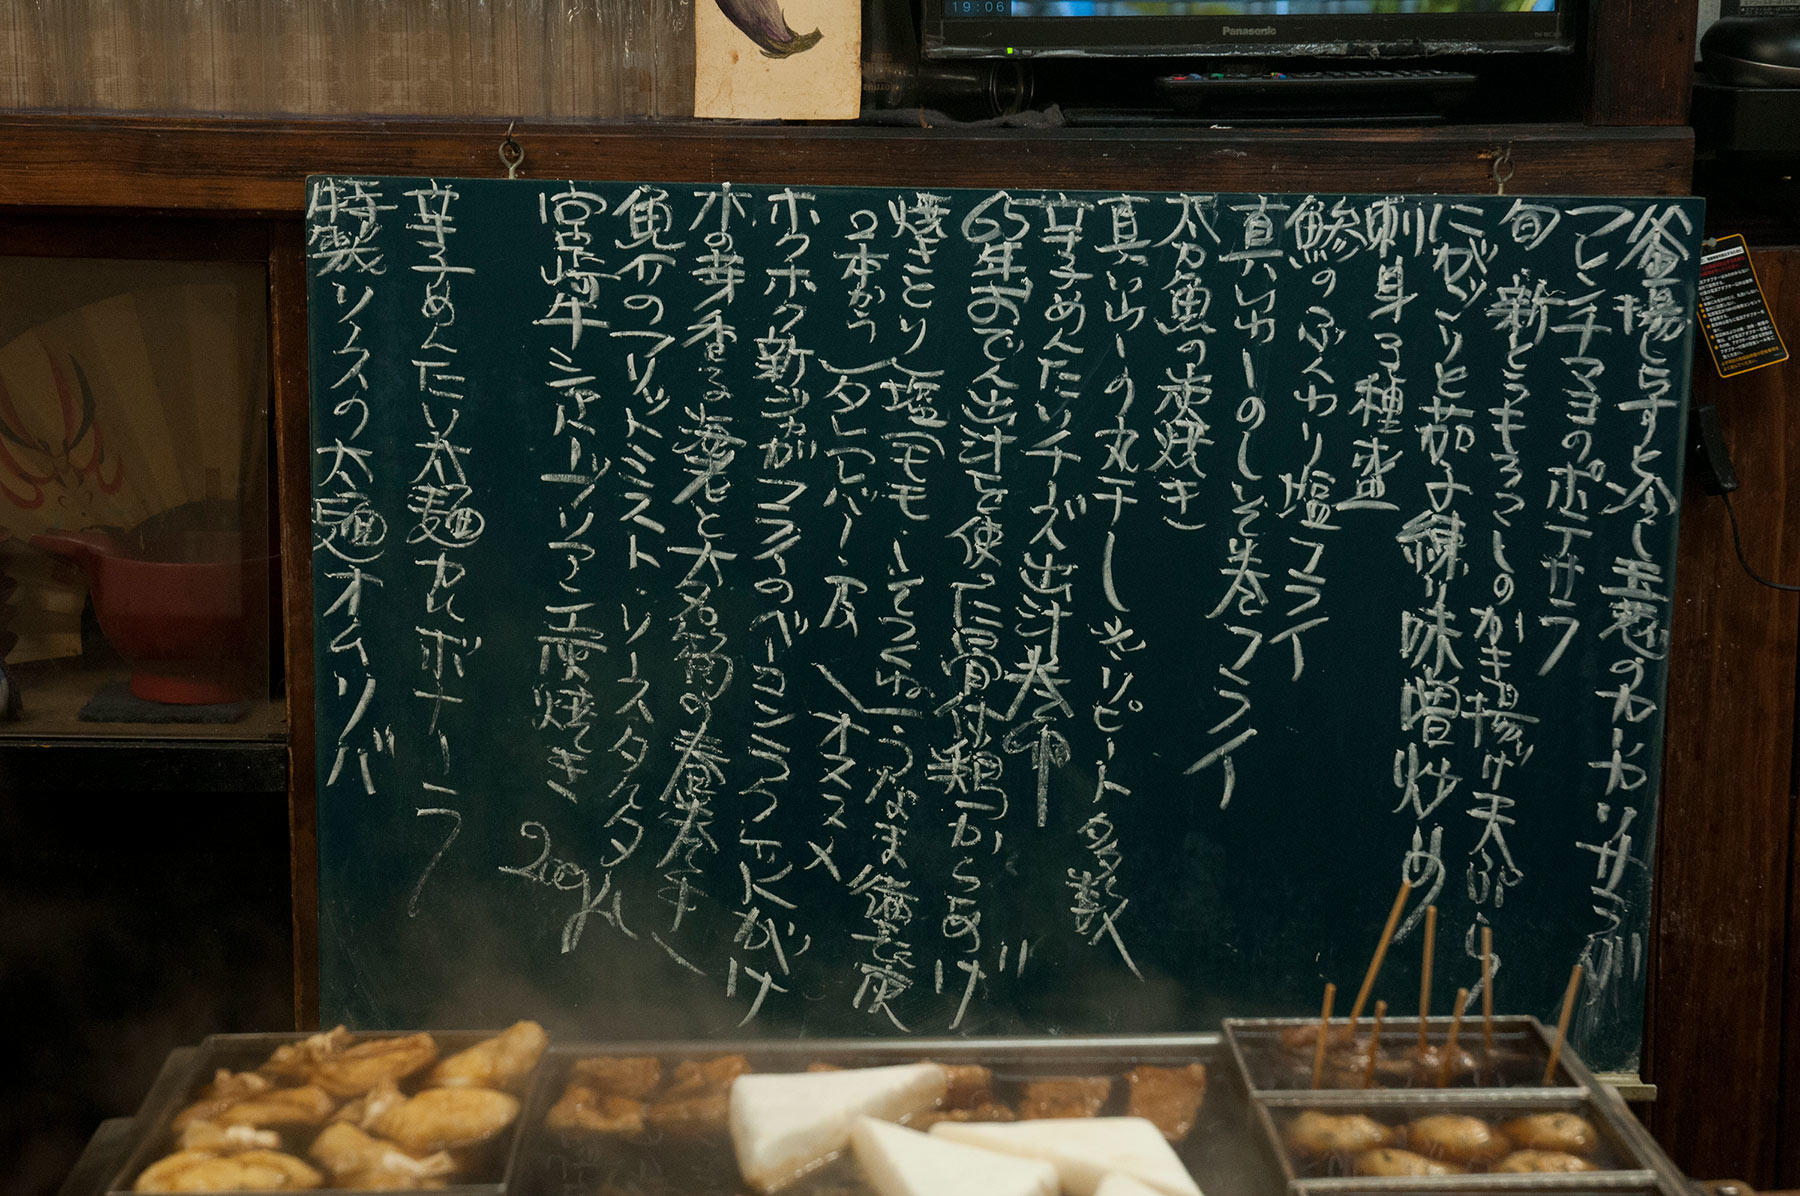 19:06
Panasonic
釜揚しらすと冷し玉葱のカルカリサラダ!!
フレンチマヨのポテサラ
旬 新とうもろこしのかき揚げ天ぷら
にがごりと茄子練り味噌炒め
刺身3種盛
鯵のふんわり塩フライ
真いわしのしそ巻フライ
太刀魚の塩焼き
真いわしの丸干し ※リピート多数
辛子めんたいチーズ出汁巻
65年おでん出汁を使った骨付鶏からあげ!!
焼きとり(塩(モモ・してつくね)うなま備長炭
2本から(タレ(レバー・皮) オススメ
ホクホク新ジャガフライのベーコン
木の芽香る海老と大名筍の春巻
魚介のフリットミスト
宮崎牛 炭焼き 200g
辛子めんたい太麺カルボナーラ
特製ソースの太麺オムソバ